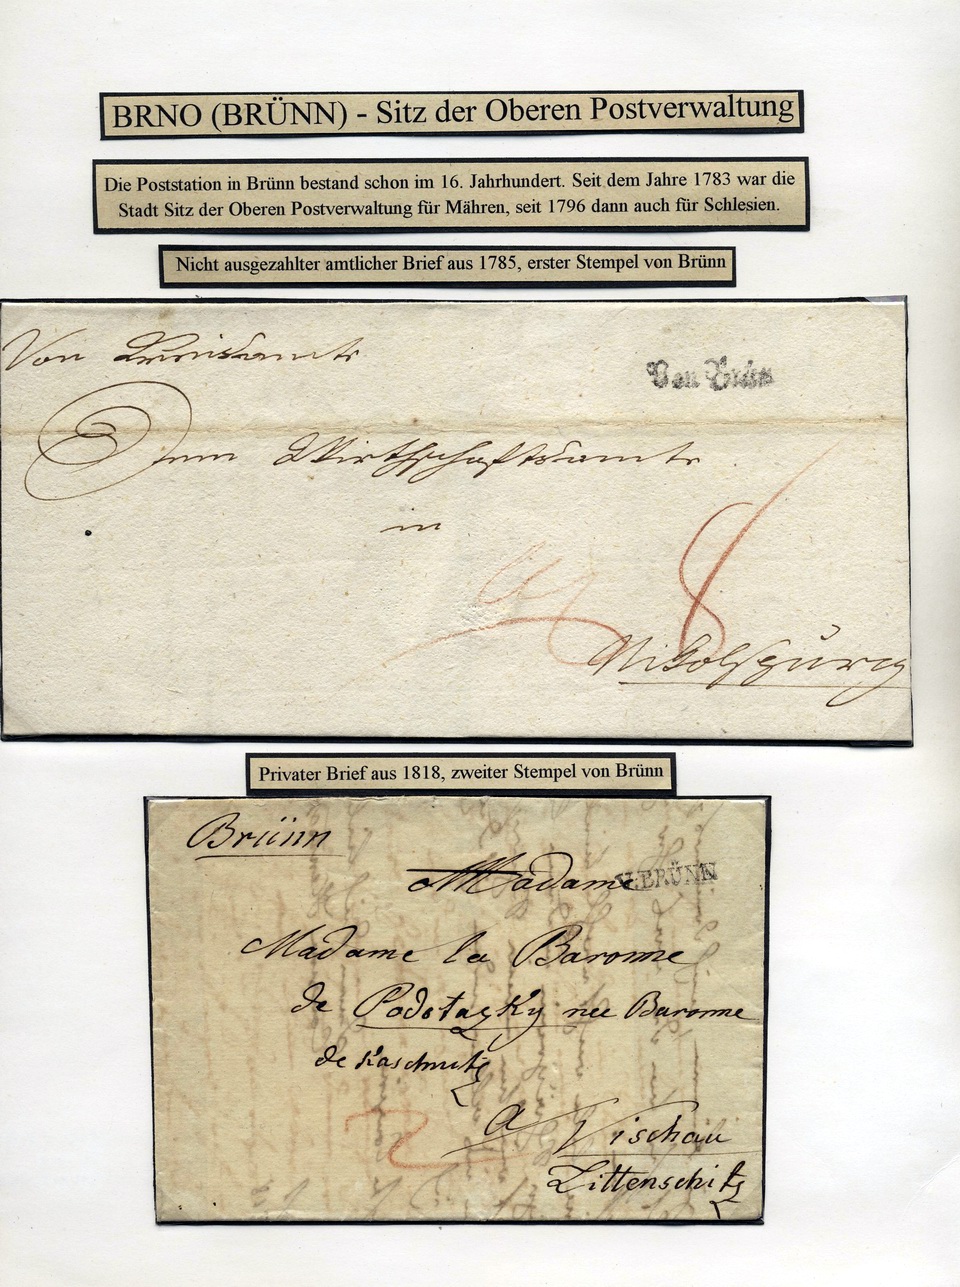 BRNO (BRÜNN) - Sitz der Oberen Postverwaltung
Die Poststation in Brünn bestand schon im 16. Jahrhundert. Seit dem Jahre 1783 war die
Stadt Sitz der Oberen Postverwaltung für Mähren, seit 1796 dann auch für Schlesien.
Nicht ausgezahlter amtlicher Brief aus 1785, erster Stempel von Brünn
Von Kreisamte
Von Brünn
Dem Wirthschaftsamte
in
8
Nikolspurg
Privater Brief aus 1818, zweiter Stempel von Brünn
Brünn
Madame
V. BRÜNN
Madame la Baronne
de Podstazky nee Baronne
de
a Vischau
Littenschitz